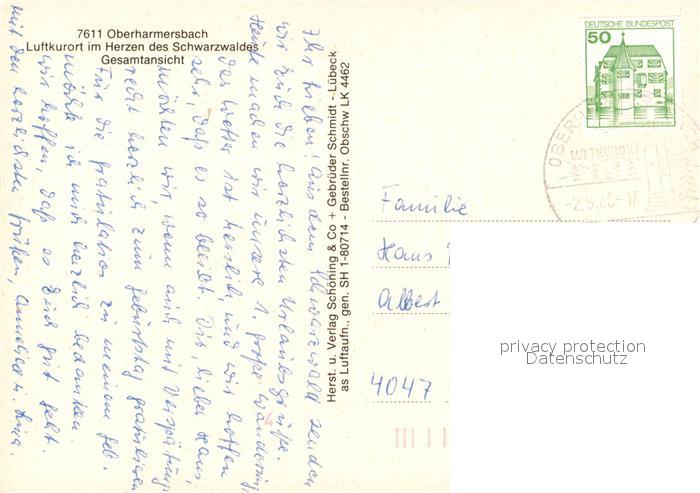 7611 Oberharmersbach
Luftkurort im Herzen des Schwarzwaldes
Gesamtansicht
Ihr Lieben! Aus dem Schwarzwald senden
wir Euch die herzlichsten Urlaubsgrüße.
Heute machen wir unsere 1. große Wanderung,
das Wetter ist herrlich, und wir hoffen
sehr, daß es so bleibt. Dir, lieber Hans,
möchten wir, wenn auch mit Verspätung,
recht herzlich zum Geburtstag gratulieren.
Für die Gratulation zu meinem Geb.
möchte ich mich herzlich bedanken.
Wir hoffen, daß es Euch gut geht.
Mit den herzlichsten Grüßen,
Herst. u. Verlag Schöning & Co + Gebrüder Schmidt - Lübeck
as Luftaufn., gen. SH 1-80714 - Bestellnr. Obschw LK 4462
DEUTSCHE BUNDESPOST
50
LUFTKURORT
Familie
Hans
Albert
4047
privacy protection
Datenschutz